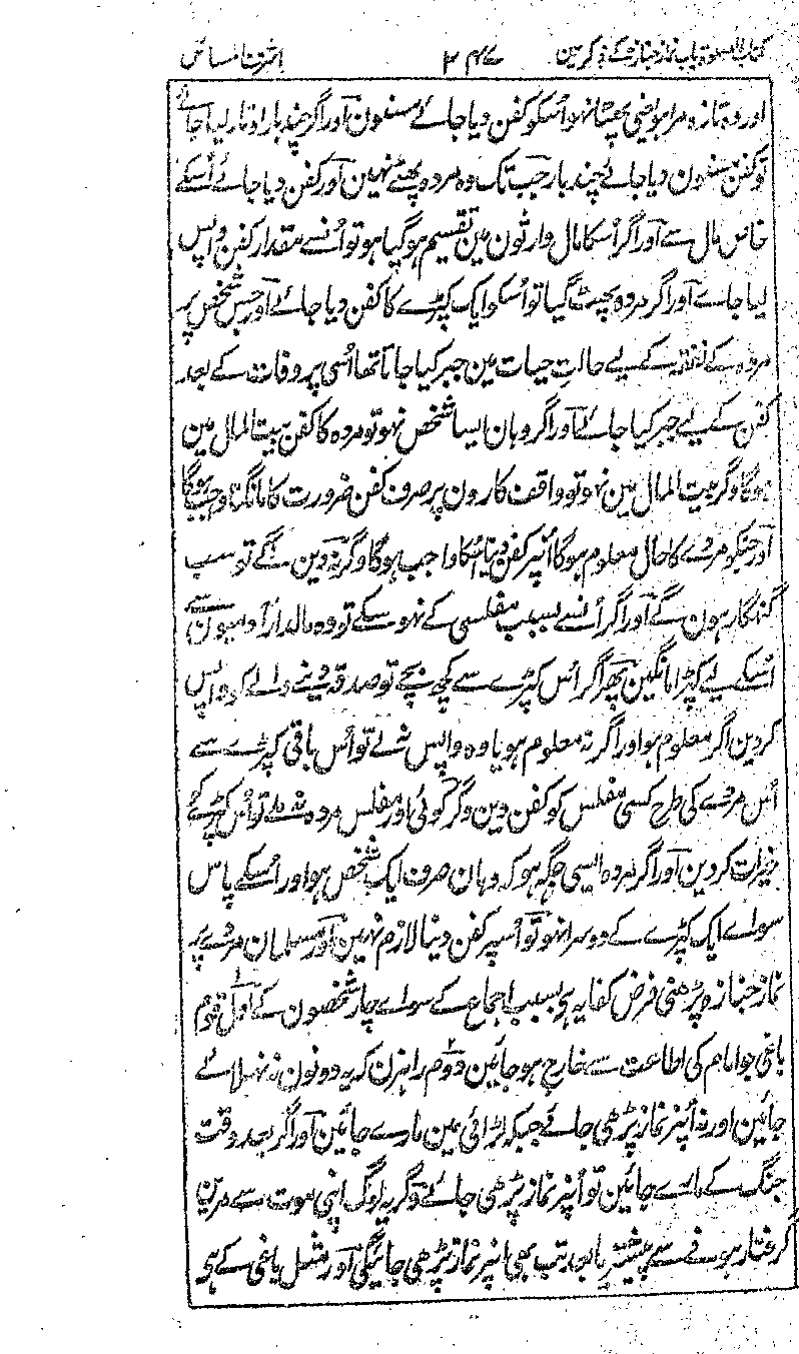 کتاب الصلوۃ باب نماز جنازہ کے ذکر مین ۲۴۷ احسن المسائل
اور وہ تازہ مرا ہو یعنی پھٹا نہو اسکو کفن دیا جائے مسنون اور اگر چند بار اوتار لیا جائے
تو کفن مسنون دیا جائے چند بار جب تک وہ مردہ پھٹے نہین اور کفن دیا جائے اسکے
خاص مال سے اور اگر اسکا مال وارثون مین تقسیم ہو گیا ہو تو انسے مقدار کفن واپس
لیا جاے اور اگر مردہ پھٹ گیا تو اسکو ایک کپڑے کا کفن دیا جائے اور جس شخص پر
مردہ کے نفقہ کے لیے حالتِ حیات مین جبر کیا جاتا تھا اسی پر وفات کے بعد
کفن کے لیے جبر کیا جائے اور اگر وہان ایسا شخص نہو تو مردہ کا کفن بیت المال مین
ہوگا وگر بیت المال مین نہو تو واقف کارون پر صرف کفن ضرورت کا مانگنا واجب ہوگا
اور جنکو مردے کا حال معلوم ہوگا انپر کفن دینا اسکا واجب ہوگا وگر نہ دین گے تو سب
گنہگار ہون گے اور اگر انسے بسبب مفلسی کے نہو سکے تو وہ مالدار آدمیون سے
اسکے لیے کپڑا مانگین پھر اگر اس کپڑے سے کچھ بچے تو صدقہ دینے والے کو واپس
کردین اگر معلوم ہو اور اگر نہ معلوم ہو یا وہ واپس نہ لے تو اس باقی کپڑے سے
اس مردے کی طرح کسی مفلس کو کفن دین وگر کوئی اور مفلس مردہ نہ ملے تو اس کپڑے کو
خیرات کردین اور اگر مردہ ایسی جگہ ہو کہ وہان صرف ایک شخص ہو اور اسکے پاس
سواے ایک کپڑے کے دوسرا نہو تو اسپر کفن دینا لازم نہین اور مسلمان مردے پر
نماز جنازہ پڑھنی فرض کفایہ ہی بسبب اجماع کے سواے چار شخصون کے اول قوم
باغی جو امام کی اطاعت سے خارج ہو جائین دوم راہزن کہ یہ دونون نہ نہلائے
جائین اور نہ انپر نماز پڑھی جائے جبکہ لڑائی مین مارے جائین اور اگر بعد وقت
جنگ کے مارے جائین تو انپر نماز پڑھی جائے وگر یہ لوگ اپنی موت سے مرین
گرفتار ہونے سے پیشتر یا بعد تب بھی انپر نماز پڑھی جائیگی اور مثل باغی کے ہی